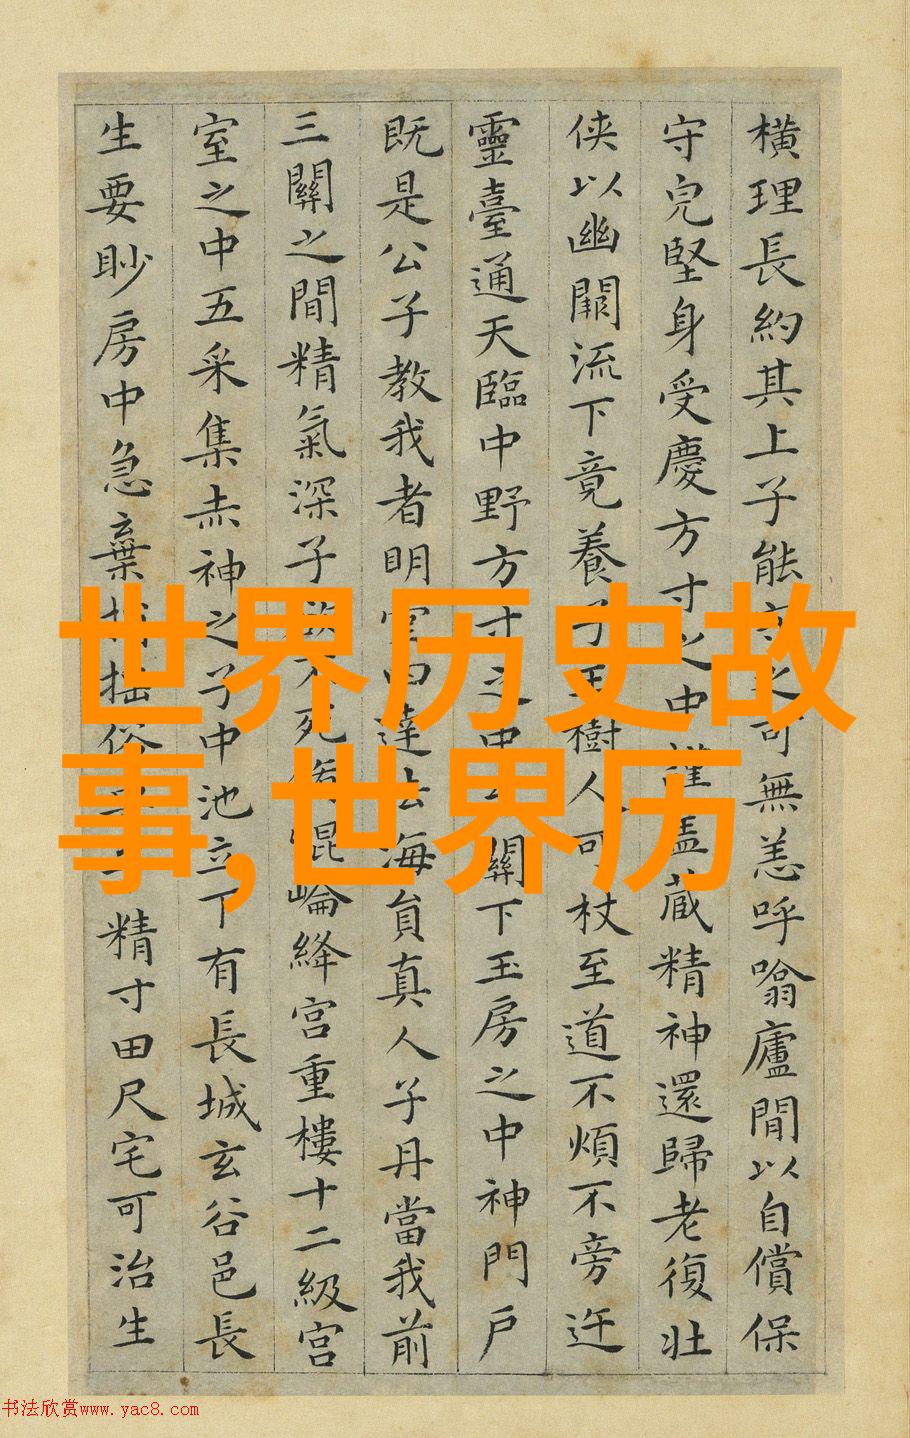 橫理長約其上子能守之可無恙呼噏廬間以自償保
守皃堅身受慶方寸之中謹盖藏精神還歸老復壯
侠以幽闕流下竟養子玉樹人可杖至道不煩不旁迕
靈臺通天臨中野方寸之中關下玉房之中神門戶
既是公子教我者明堂四達法海員真人子丹當我前
三關之間精氣深子欲不死脩崐崘絳宮重樓十二級宮
室之中五采集赤神之子中池立下有長城玄谷邑長
生要眇房中急棄捐俗子精寸田尺宅可治生
世界历史故
事,世界历
书法欣赏www.yac8.com